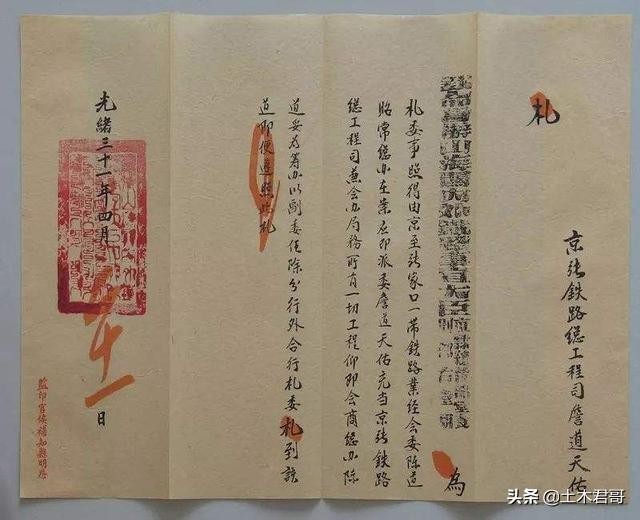 札
京張鉄路總工程司詹道天佑
為
札委事照得由京至張家口一帶鉄路業經會委陳道
昭常總辦在案應即派委詹道天佑充當京張鉄路
總工程司兼會辦局務所有一切工程仰即會商總辦陳
道妥為籌办以副委任除分行外合行札委札到該
道即便遵照此札
光緒三十一年四月
日
監印官候補知縣明
头条 @土木君哥